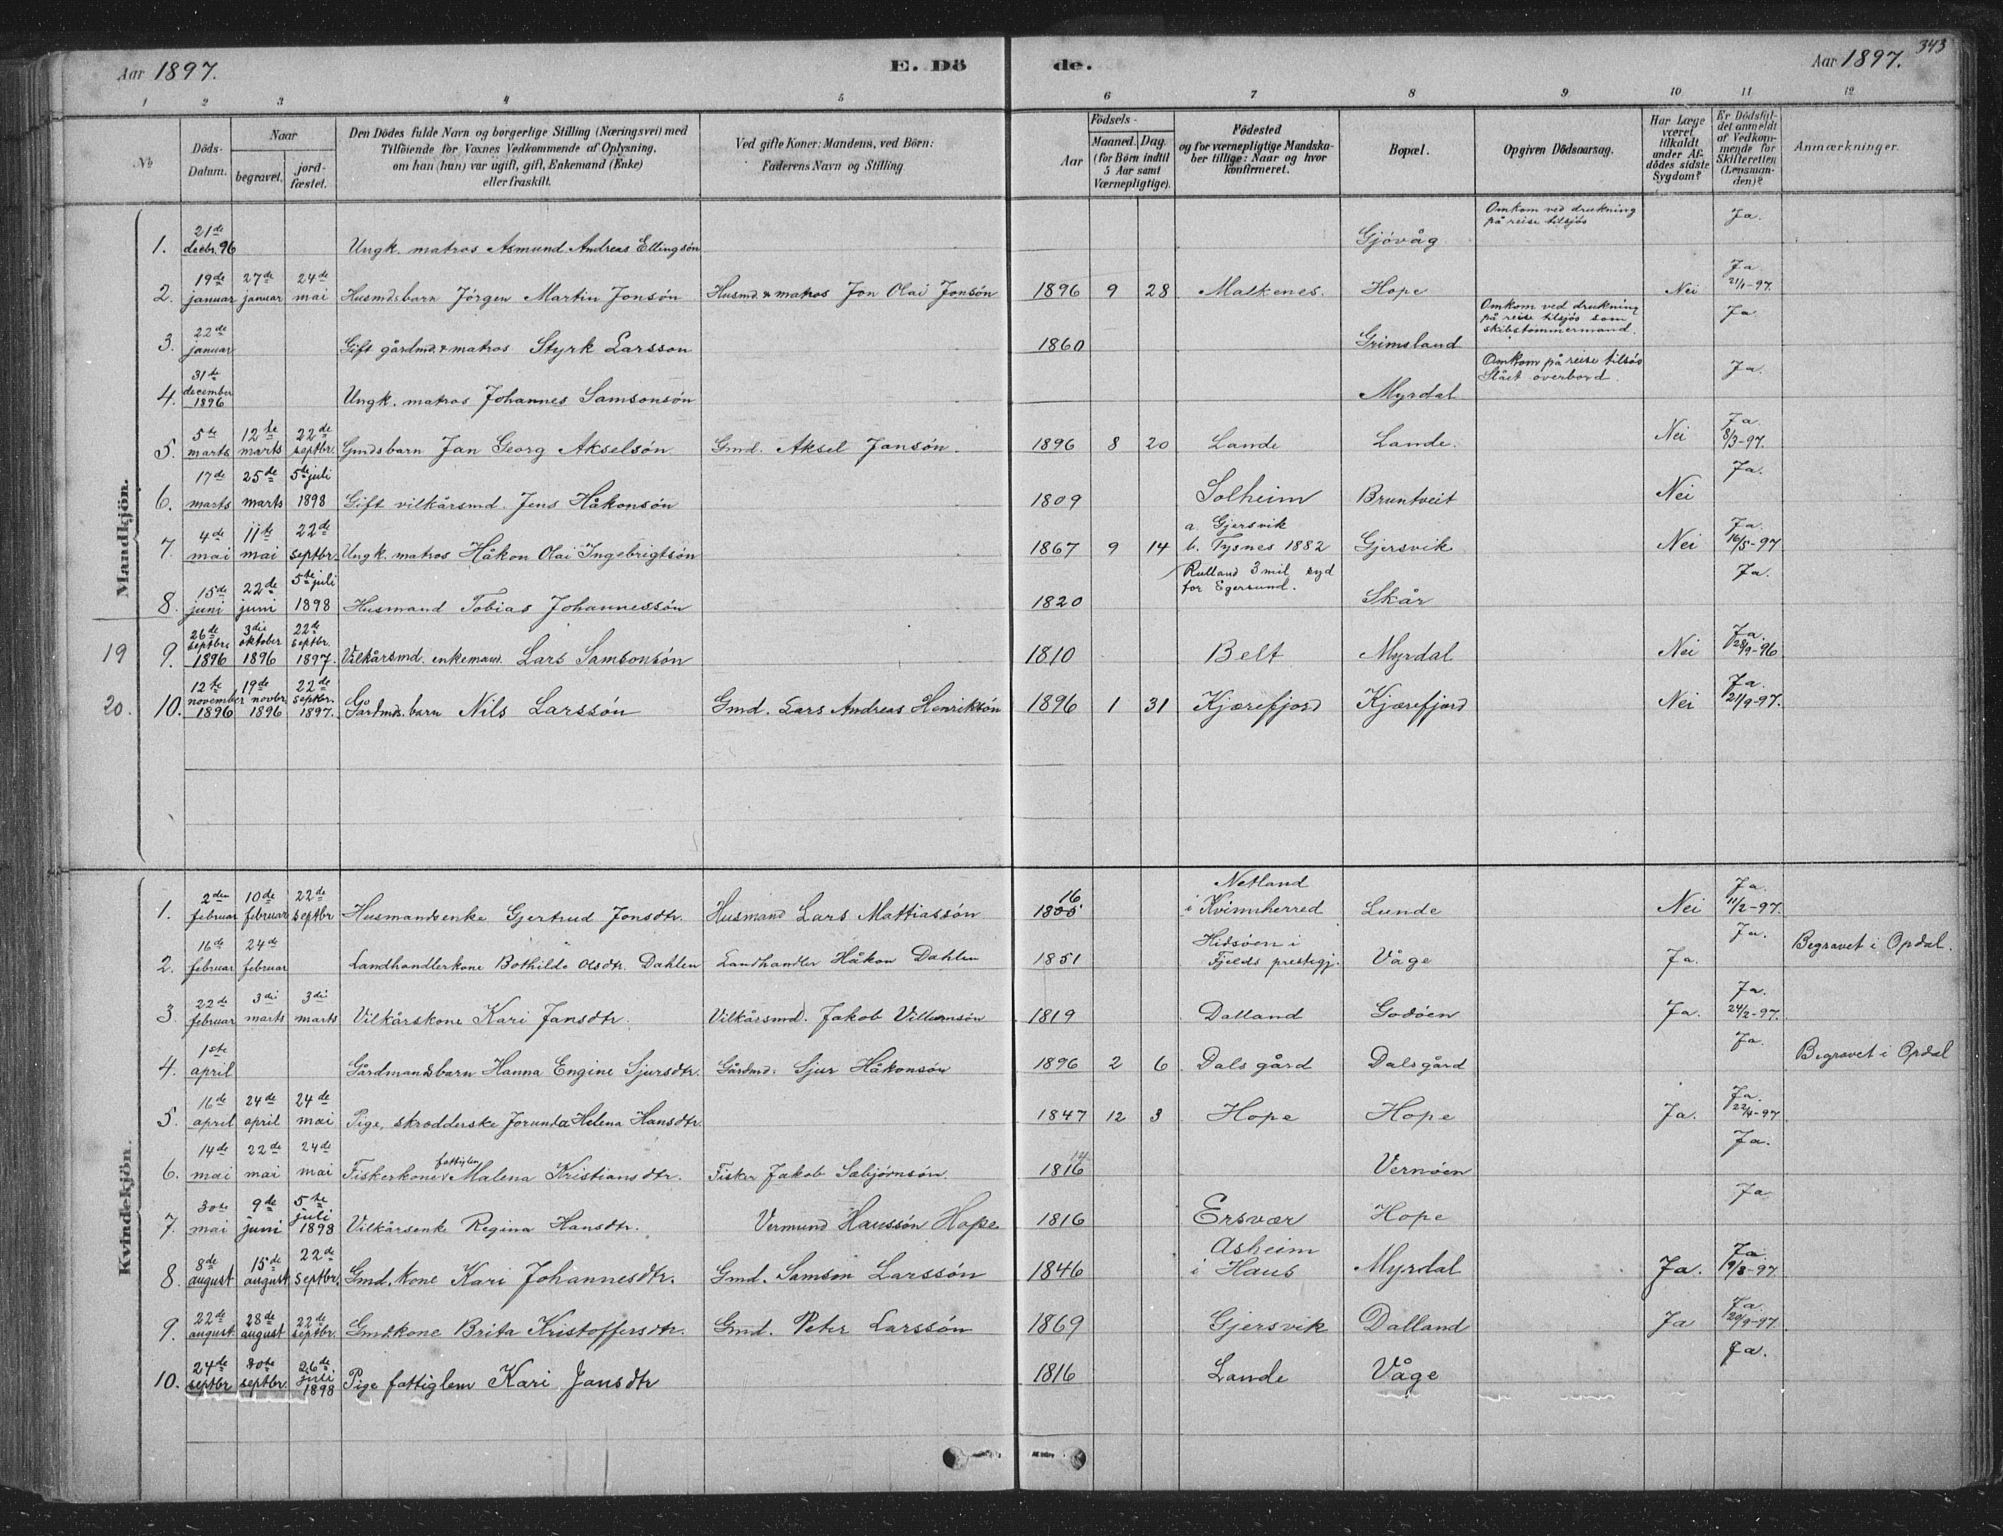 Aar 1897. E. Dö de. Aar 1897. 343
1 2 3 4 5 6 7 8 9 10 11 12
No Döds-Datum. Naar begravet. jord-fæstet. Den Dödes fulde Navn og borgerlige Stilling (Næringsvei) med Tilföiende for Voxnes Vedkommende af Oplysning, om han (hun) var ugift, gift, Enkemand (Enke) eller fraskilt. Ved gifte Koner: Mandens, ved Börn: Faderens Navn og Stilling. Födsels- Aar Maaned. Dag. (for Börn indtil 5 Aar samt Værnepligtige). Födested og for værnepligtige Mandska-ber tillige: Naar og hvor konfirmeret. Bopæl. Opgiven Dödsaarsag. Har Læge været tilkaldt under Af-dödes sidste Sygdom? Er Dödsfal-det anmeldt af Vedkom-mende for Skifteretten (Lensman-den)? Anmærkninger.
Mandkjön.
1. 21de decbr. 96 Ungk. matros Asmund Andreas Ellingsøn Gjøvåg Omkom ved drukning på reise tilsjøs Ja.
2. 19de januar 27de januar 24de mai Husmdsbarn Jørgen Martin Jonsøn Husmd & matros Jon Olai Jonsøn 1896 9 28 Malkenes. Hope Nei Ja 21/1-97.
3. 22de januar Gift gårdmd. & matros Styrk Larsson 1860 Grimsland Omkom ved drukning på reise tilsjøs som skibstømmermand. Ja.
4. 31te december 1896 Ungk. matros Johannes Samsonsøn Myrdal Omkom på reise tilsøs Slået overbord. Ja.
5. 5te marts 12te marts 22de septbr. Gmdsbarn Jan Georg Akselsøn Gmd. Aksel Jansøn. 1896 8 20 Lande Lande. Nei Ja. 8/3-97.
6. 17de marts 25de marts 5te juli 1898 Gift vilkårsmd. Jens Håkonsøn 1809 Solheim Bruntveit Nei Ja.
7. 4de mai 11te mai 22de septbr. Ungk. matros Håkon Olai Ingebrigtsøn 1867 9 14 a. Gjersvik b. Tysnes 1882 Gjersvik Nei Ja. 16/5-97
8. 15de juni 22de juni 5te juli 1898 Husmand Tobias Johannessøn 1820 Rulland 3 mil syd for Egersund. Skår Ja.
19 9. 26de septbr. 1896 3die oktober 1896 22de septbr. 1897. Vilkårsmd. enkeman. Lars Samsonsøn 1810 Belt Myrdal Nei Ja. 28/9-96
20. 10. 12te november 1896 19de novbr. 1896 22de septbr. 1897. Gårdmds. barn Nils Larssøn Gmd. Lars Andreas Henriksøn 1896 1 31 Kjærefjord Kjærefjord Nei Ja. 21/9-97.
Kvindekjön.
1. 2den februar 10de februar 22de septbr Husmandsenke Gjertrud Jonsdtr. Husmand Lars Mattiassøn 16 1855 Netland i Kvinnherred Lunde Nei Ja. 11/2-97.
2. 16de februar 24de februar Landhandlerkone Bothilde Olsdtr. Dahlen Landhandler Håkon Dahlen 1851 Hidsøen i Fjelds prestegj. Våge Ja. Ja. Begravet i Opdal.
3. 22de februar 3die marts 3die marts Vilkårskone Kari Jansdtr. Vilkårsmd. Jakob Villumsøn 1819 Dalland Godøen Ja. Ja. 24/2-97.
4. 1ste april Gårdmandsbarn Hanna Engine Sjursdtr. Gårdmd. Sjur Håkonsøn 1896 2 6 Dalsgård Dalsgård Ja. Begravet i Opdal
5. 16de april 24de april 24de mai Pige, skrædderske Jorunda Helena Hansdtr. 1847 12 3 Hope Hope Ja. Ja. 22/4-97.
6. 14de mai 22de mai 24de mai Fiskerkone fattiglem Malena Kristiansdtr. Fisker Jakob Sæbjørnsøn. 1816 14 Vernøen Ja.
7. 30te mai 9de juni 5te juli 1898 Vilkårsenke Regina Hansdtr. Vermund Haussøn Hope 1816 Ersvær Hope Ja
8. 8de august 15de august 22de septbr. Gmd. kone Kari Johannesdtr. Gmd. Samson Larssøn 1846 Asheim i Haus Myrdal Ja. Ja. 19/8-97
9. 22de august 28de august 22de septbr. Gmdkone Brita Kristoffersdtr. Gmd. Peter Larssøn 1869 Gjersvik Dalland Ja Ja. 20/9-97.
10. 24de septbr 30te septbr 26de juli 1898 Pige fattiglem Kari Jansdtr 1816 Lande Våge Ja.